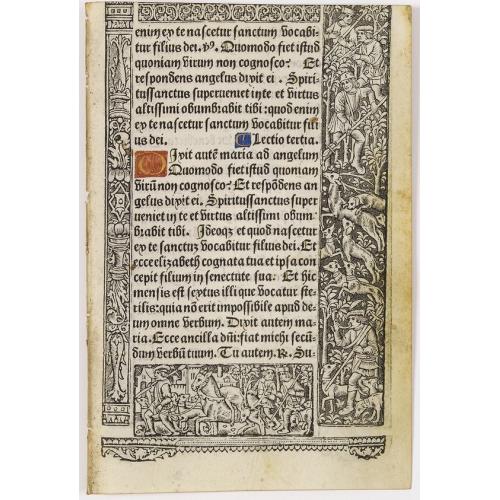 enim ex te nascetur sanctum vocabi
tur filius dei. v9. Quomodo fiet istud
quoniam virum non cognosco? Et
respondens angelus dixit ei. Spiri-
tussanctus superveniet in te et virtus
altissimi obumbrabit tibi: quod enim
ex te nascetur sanctum vocabitur fili
us dei. Lectio tertia.
Dixit autē maria ad angelum
Quomodo fiet istud quoniam
virū non cognosco? Et respōdens an-
gelus dixit ei. Spiritussanctus super
veniet in te et virtus altissimi obum-
brabit tibi. Ideoqz et quod nascetur
ex te sanctuz vocabitur filius dei. Et
ecce elizabeth cognata tua et ipsa con
cepit filium in senectute sua: Et hic
mensis est sextus illi que vocatur ste
rilis: quia nō erit impossibile apud de
um omne verbum. Dixit autem ma-
ria. Ecce ancilla dn̄i: fiat michi secū-
dum verbū tuum. Tu autem. R. Su-